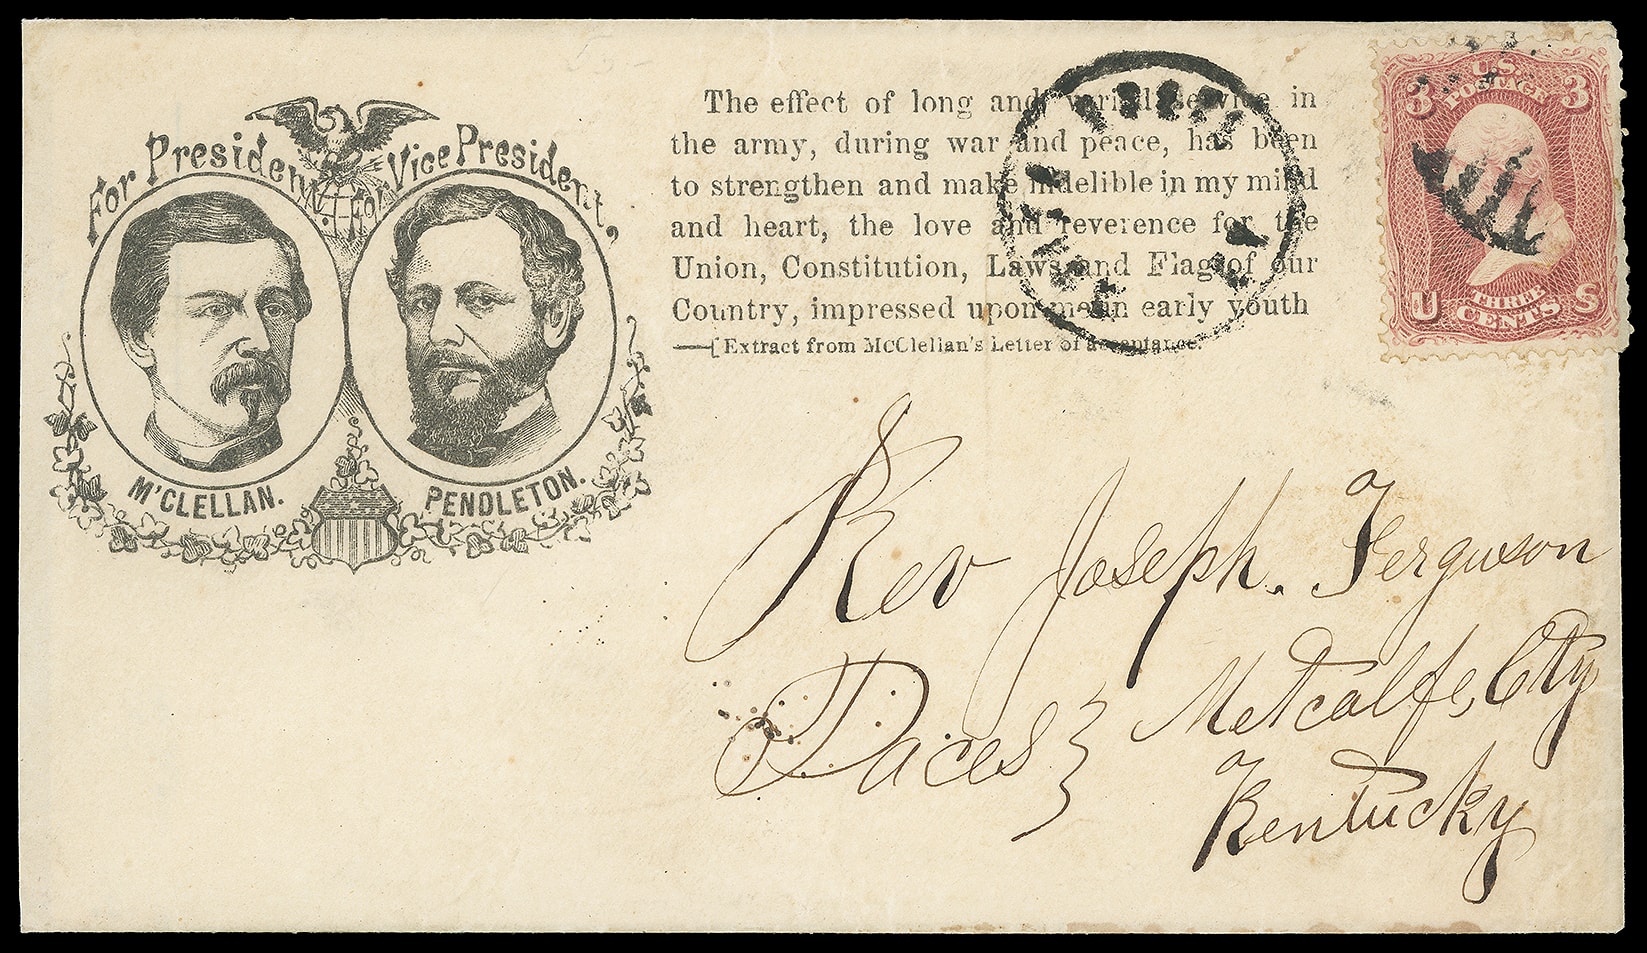 For President,
For Vice President,
M'CLELLAN.
PENDLETON.
The effect of long and varied service in
the army, during war and peace, has been
to strengthen and make indelible in my mind
and heart, the love and reverence for the
Union, Constitution, Laws and Flag of our
Country, impressed upon me in early youth
—[Extract from McClellan's Letter of acceptance.
3 U.S. 3
POSTAGE
U THREE S
CENTS
Rev Joseph. Ferguson
Metcalfe, Cty
Kentucky